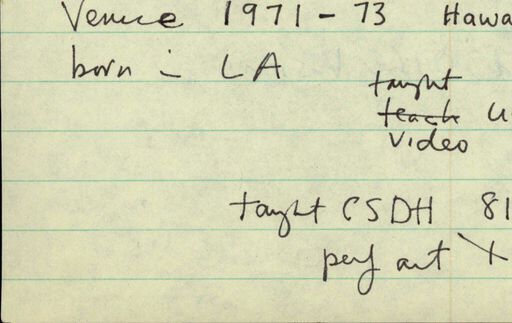 Venice 1971-73 Hawa
born in LA
taught
teach U
video
taught CSDH 81
perf art +